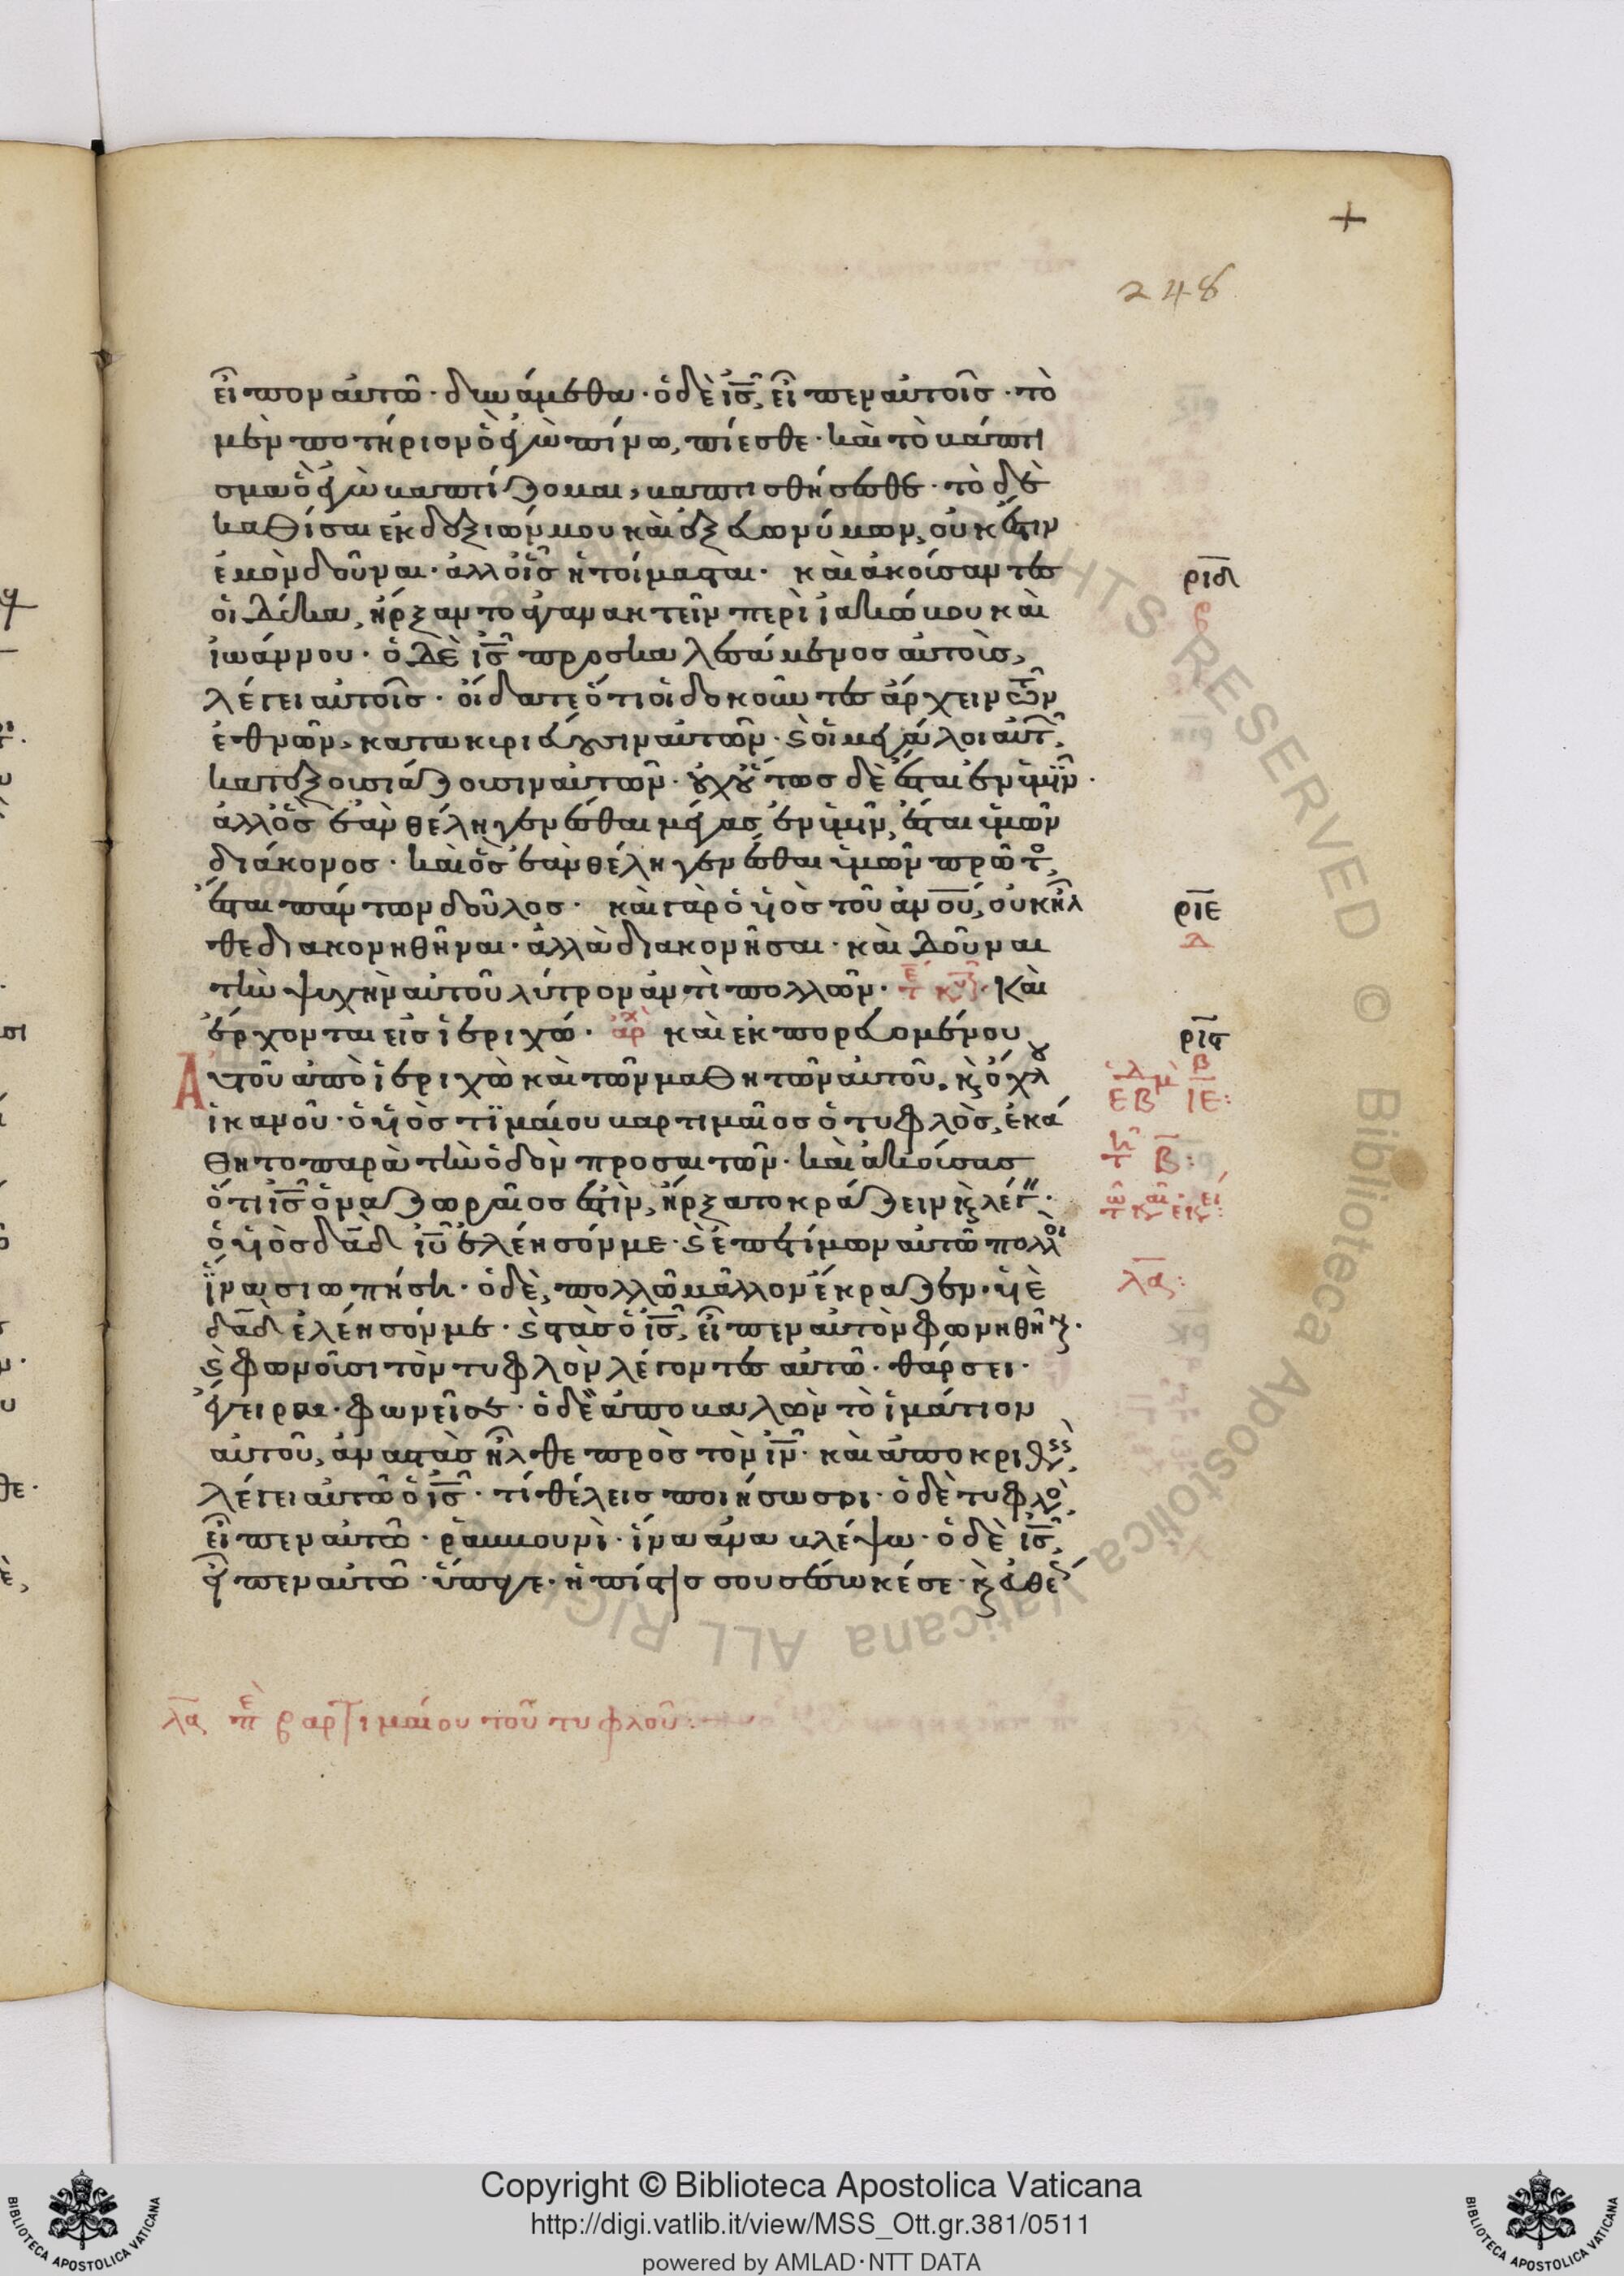 +
248
εἶπον αὐτῶ· δυνάμεθα· ὁ δὲ ις, εἶπεν αὐτοῖς· τὸ
μὲν ποτήριον ὃ ἐγὼ πίνω, πίεσθε· καὶ τὸ βάπτι
σμα ὃ ἐγὼ βαπτίζομαι, βαπτισθήσεσθε· τὸ δὲ
καθίσαι ἐκ δεξιῶν μου καὶ ἐξ εὐωνύμων, οὐκ ἔστιν
ἐμὸν δοῦναι· ἀλλ οἷς ἡτοίμασται· καὶ ἀκούσαντες
οἱ δέκα, ἤρξαντο ἀγανακτεῖν περὶ ἰακώβου καὶ
ἰωάννου· ὁ δὲ ις προσκαλεσάμενος αὐτοὺς,
λέγει αὐτοῖς· οἴδατε ὅτι οἱ δοκοῦντες ἄρχειν τῶν
ἐθνῶν, κατακυριεύουσιν αὐτῶν· καὶ οἱ μεγάλοι αὐτ,
κατεξουσιάζουσιν αὐτῶν· οὐχ οὕτως δὲ ἔσται ἐν ὑμῖν·
ἀλλ ὃς ἐὰν θέλη γενέσθαι μέγας ἐν ὑμῖν, ἔσται ὑμῶν
διάκονος· καὶ ὃς ἐὰν θέλη γενέσθαι ὑμῶν πρῶτο,
ἔσται πάντων δοῦλος· καὶ γὰρ ὁ υἱὸς τοῦ ανου, οὐκ ἦλ
θε διακονηθῆναι· ἀλλὰ διακονῆσαι· καὶ δοῦναι
τὴν ψυχὴν αὐτοῦ λύτρον ἀντὶ πολλῶν· Καὶ
ἔρχονται εἰς ἱεριχώ· ἀρχ καὶ ἐκπορευομένου
αὐτοῦ ἀπὸ ἱεριχὼ καὶ τῶν μαθητῶν αὐτοῦ. καὶ ὄχλου
ἱκανοῦ· ὁ υἱὸς τϊμαίου βαρτιμαῖος ὁ τυφλὸς, ἐκά
θητο παρὰ τὴν ὁδὸν προσαιτῶν· καὶ ἀκούσας
ὅτι ις ὁ ναζωραῖος ἐστὶν, ἤρξατο κράζειν καὶ λέγ·
ὁ υἱὸς δαδ ιυ ἐλέησόν με· καὶ ἐπετίμων αὐτῶ πολλοὶ
ἵνα σιωπήση· ὁ δὲ, πολλῶ μᾶλλον ἔκραζεν· υἱὲ
δαδ ἐλέησόν με· καὶ στὰς ὁ ις, εἶπεν αὐτὸν φωνηθῆναι·
καὶ φωνοῦσι τὸν τυφλὸν λέγοντες αὐτῶ· θάρσει·
ἔγειραι· φωνεῖ σε· ὁ δὲ ἀποβαλὼν τὸ ἱμάτιον
αὐτοῦ, ἀναστὰς ἦλθε πρὸς τὸν ιν· καὶ ἀποκριθεὶς,
λέγει αὐτῶ ὁ ις· τί θέλεις ποιήσω σοι· ὁ δὲ τυφλὸ,
εἶπεν αὐτῶ· ῥαββουνὶ· ἵνα ἀναβλέψω· ὁ δὲ ις,
εἶπεν αὐτῶ· ὕπαγε· ἡ πίστις σου σέσωκέ σε· καὶ εὐθέ
ριδ
β
ριε
Δ
ρις
λα:
λα π βαρτιμαίου τοῦ τυφλοῦ:
Copyright © Biblioteca Apostolica Vaticana
http://digi.vatlib.it/view/MSS_Ott.gr.381/0511
powered by AMLAD·NTT DATA
BIBLIOTECA APOSTOLICA VATICANA
BIBLIOTECA APOSTOLICA VATICANA